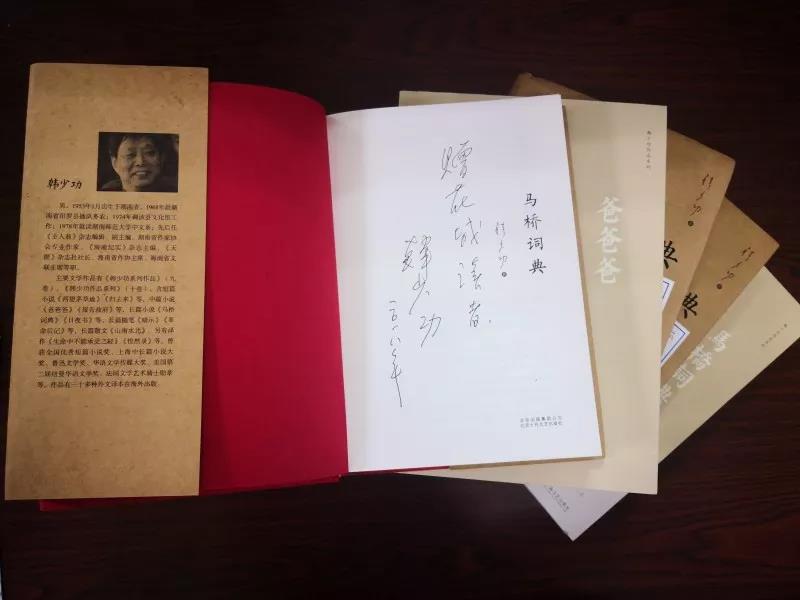 韩少功
男，1953年1月出生于湖南省。1968年赴湖
南省汨罗县插队务农；1974年调该县文化馆工
作；1978年就读湖南师范大学中文系；先后任
《主人翁》杂志编辑、副主编，湖南省作家协
会专业作家，《海南纪实》杂志主编、《天
涯》杂志社社长，海南省作协主席，海南省文
联主席等职。
主要文学作品有《韩少功系列作品》（九
卷），《韩少功作品系列》（十卷），含短篇
小说《西望茅草地》《归去来》等，中篇小说
《爸爸爸》《报告政府》等，长篇小说《马桥
词典》《日夜书》等，长篇随笔《暗示》《革
命后记》等，长篇散文《山南水北》。另有译
作《生命中不能承受之轻》《惶然录》等。曾
获全国优秀短篇小说奖、上海中长篇小说大
奖、鲁迅文学奖、华语文学传媒大奖、美国第
二届纽曼华语文学奖、法国文学艺术骑士勋章
等。作品有三十多种外文译本在海外出版。
赠花城读者
韩少功
二〇一八年
马桥词典
韩少功 著
北京出版集团公司
北京十月文艺出版社
爸爸爸
韩少功
典
韩少功
典
馬橋词典